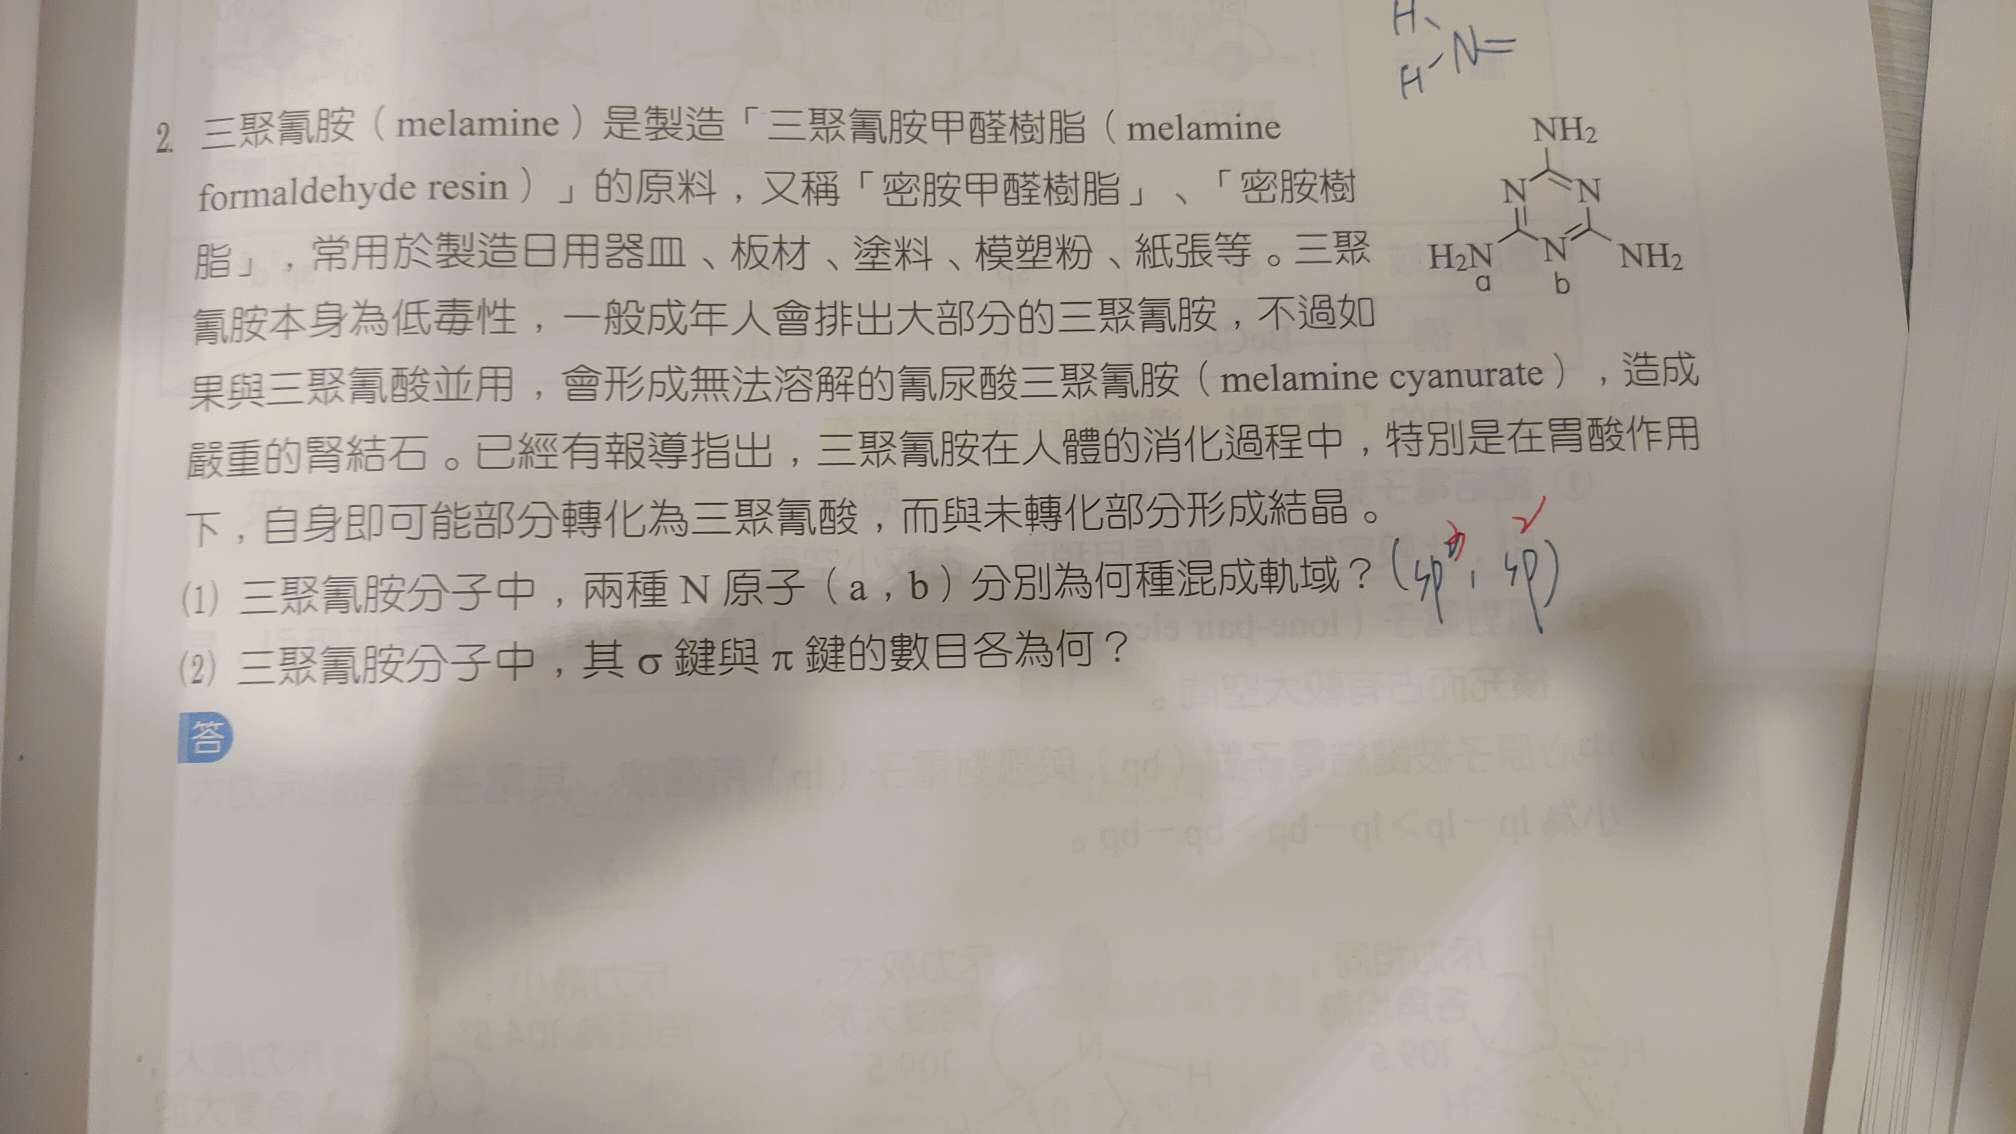 H
H N=
2. 三聚氰胺（melamine）是製造「三聚氰胺甲醛樹脂（melamine
formaldehyde resin）」的原料，又稱「密胺甲醛樹脂」、「密胺樹
脂」，常用於製造日用器皿、板材、塗料、模塑粉、紙張等。三聚
氰胺本身為低毒性，一般成年人會排出大部分的三聚氰胺，不過如
果與三聚氰酸並用，會形成無法溶解的氰尿酸三聚氰胺（melamine cyanurate），造成
嚴重的腎結石。已經有報導指出，三聚氰胺在人體的消化過程中，特別是在胃酸作用
下，自身即可能部分轉化為三聚氰酸，而與未轉化部分形成結晶。
NH2
N N
H2N N NH2
a b
(1) 三聚氰胺分子中，兩種 N 原子（a，b）分別為何種混成軌域？
(2) 三聚氰胺分子中，其 σ 鍵與 π 鍵的數目各為何？
答